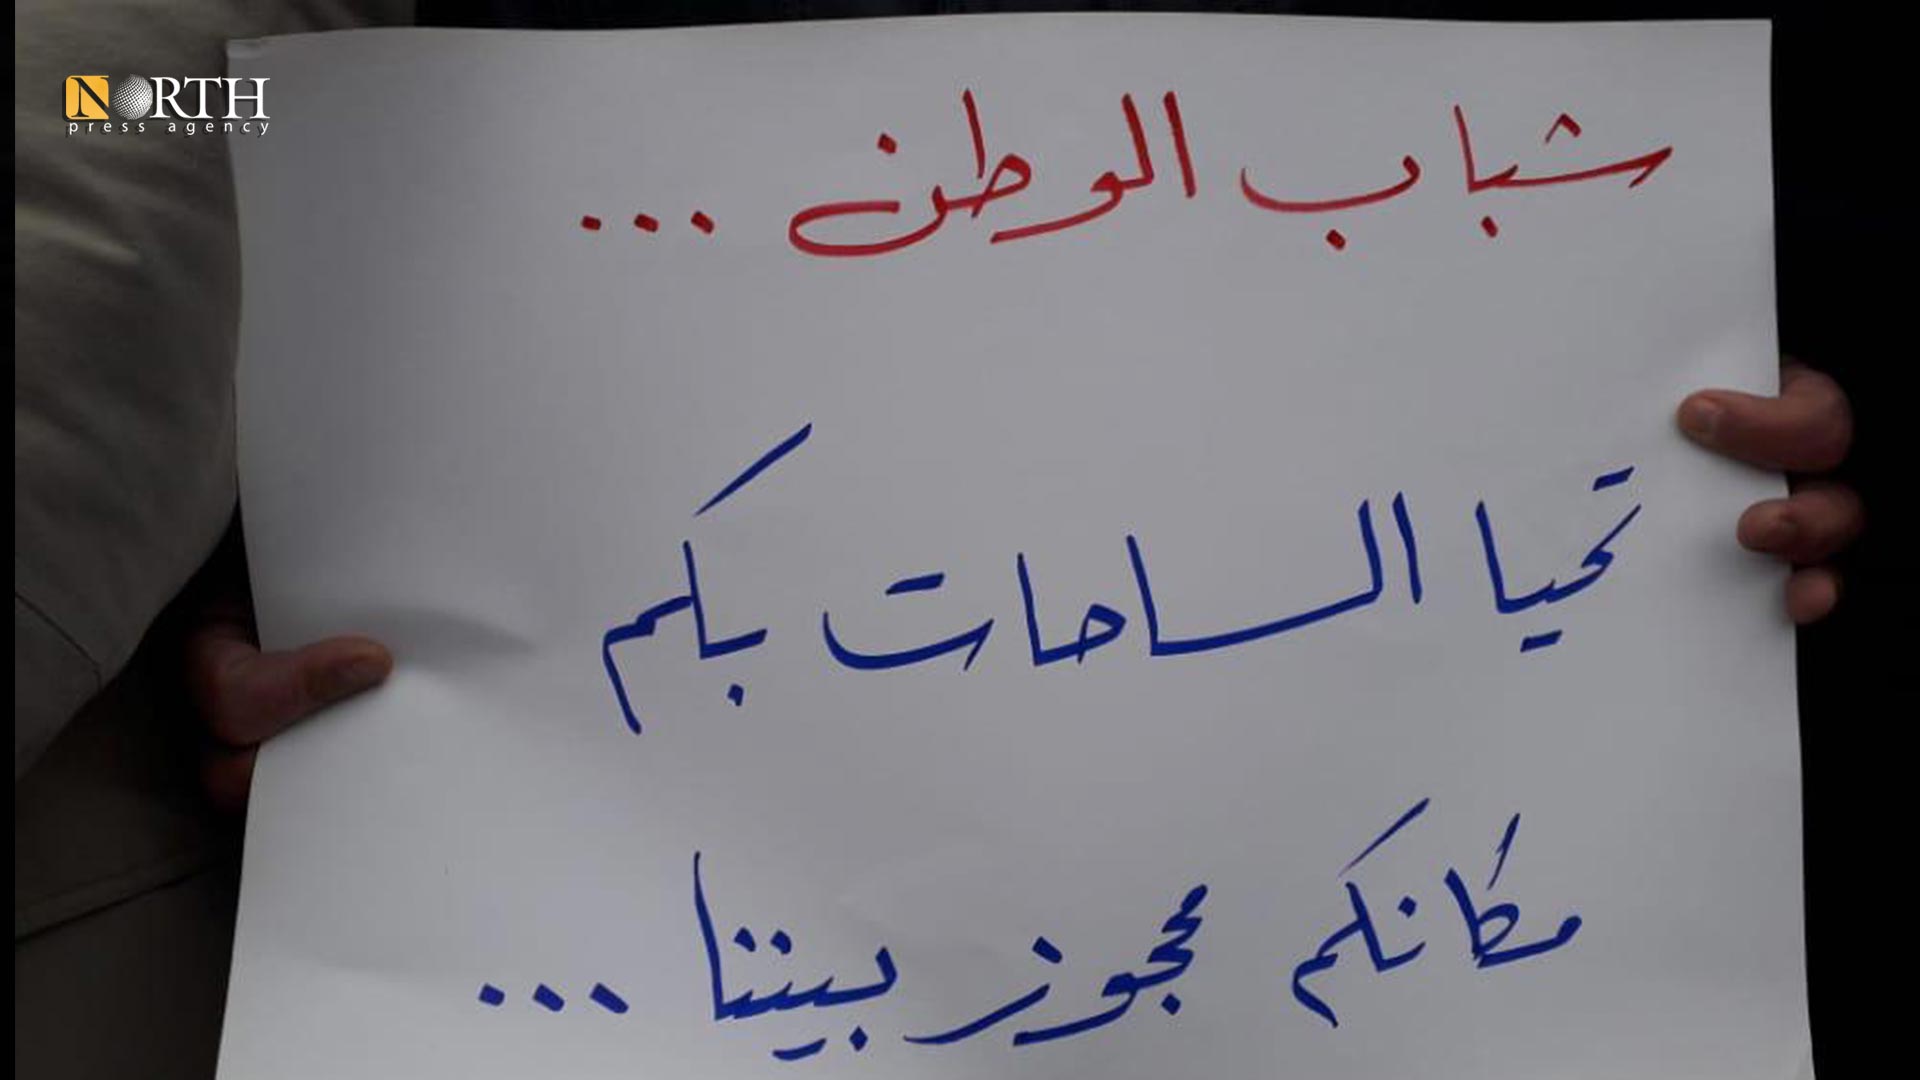 NORTH
press agency
شباب الوطن ...
تحيا الساحات بكم
مكانكم محجوز بيننا ...